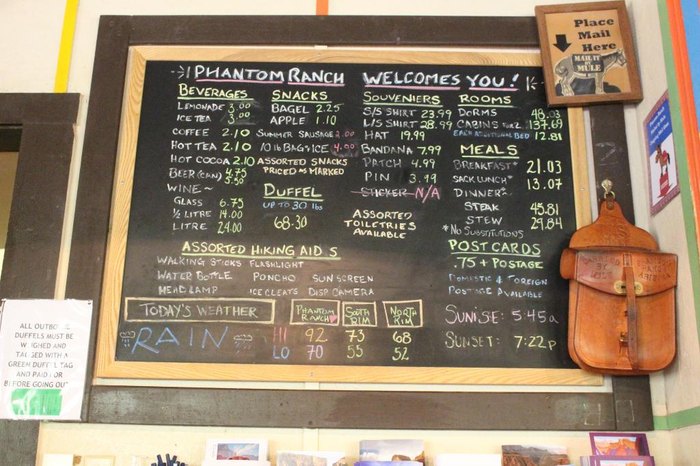 PHANTOM RANCH WELCOMES YOU!
BEVERAGES
LEMONADE 3.00
ICE TEA 3.00
COFFEE 2.10
HOT TEA 2.10
HOT COCOA 2.10
BEER (CAN) 4.75
5.50
WINE~
GLASS 6.75
½ LITRE 14.00
LITRE 24.00
SNACKS
BAGEL 2.25
APPLE 1.10
SUMMER SAUSAGE 2.00
10 lb BAG ICE 4.00
ASSORTED SNACKS
PRICED AS MARKED
DUFFEL
UP TO 30 lbs
68.30
SOUVENIERS
S/S SHIRT 23.99
L/S SHIRT 28.99
HAT 19.99
BANDANA 7.99
PATCH 4.99
PIN 3.49
STICKER N/A
ASSORTED
TOILETRIES
AVAILABLE
ROOMS
DORMS 48.03
CABINS FOR 2 137.69
EACH ADDITIONAL BED 12.81
MEALS
BREAKFAST* 21.03
SACK LUNCH* 13.07
DINNER~
STEAK 45.81
STEW 29.84
*NO SUBSTITUTIONS
POST CARDS
.75 + POSTAGE
DOMESTIC & FOREIGN
POSTAGE AVAILABLE
ASSORTED HIKING AID S
WALKING STICKS FLASHLIGHT
WATER BOTTLE PONCHO SUN SCREEN
HEAD LAMP ICE CLEATS DISP CAMERA
TODAY'S WEATHER PHANTOM RANCH SOUTH RIM NORTH RIM
RAIN HI 92 73 68
LO 70 55 52
SUNRISE: 5:45a
SUNSET: 7:22p
Place
Mail
Here
MAILED BY
MULE
ALL OUTBOUND
DUFFELS MUST BE
WEIGHED AND
TAGGED WITH A
GREEN DUFFEL TAG
AND PAID FOR
BEFORE GOING OUT